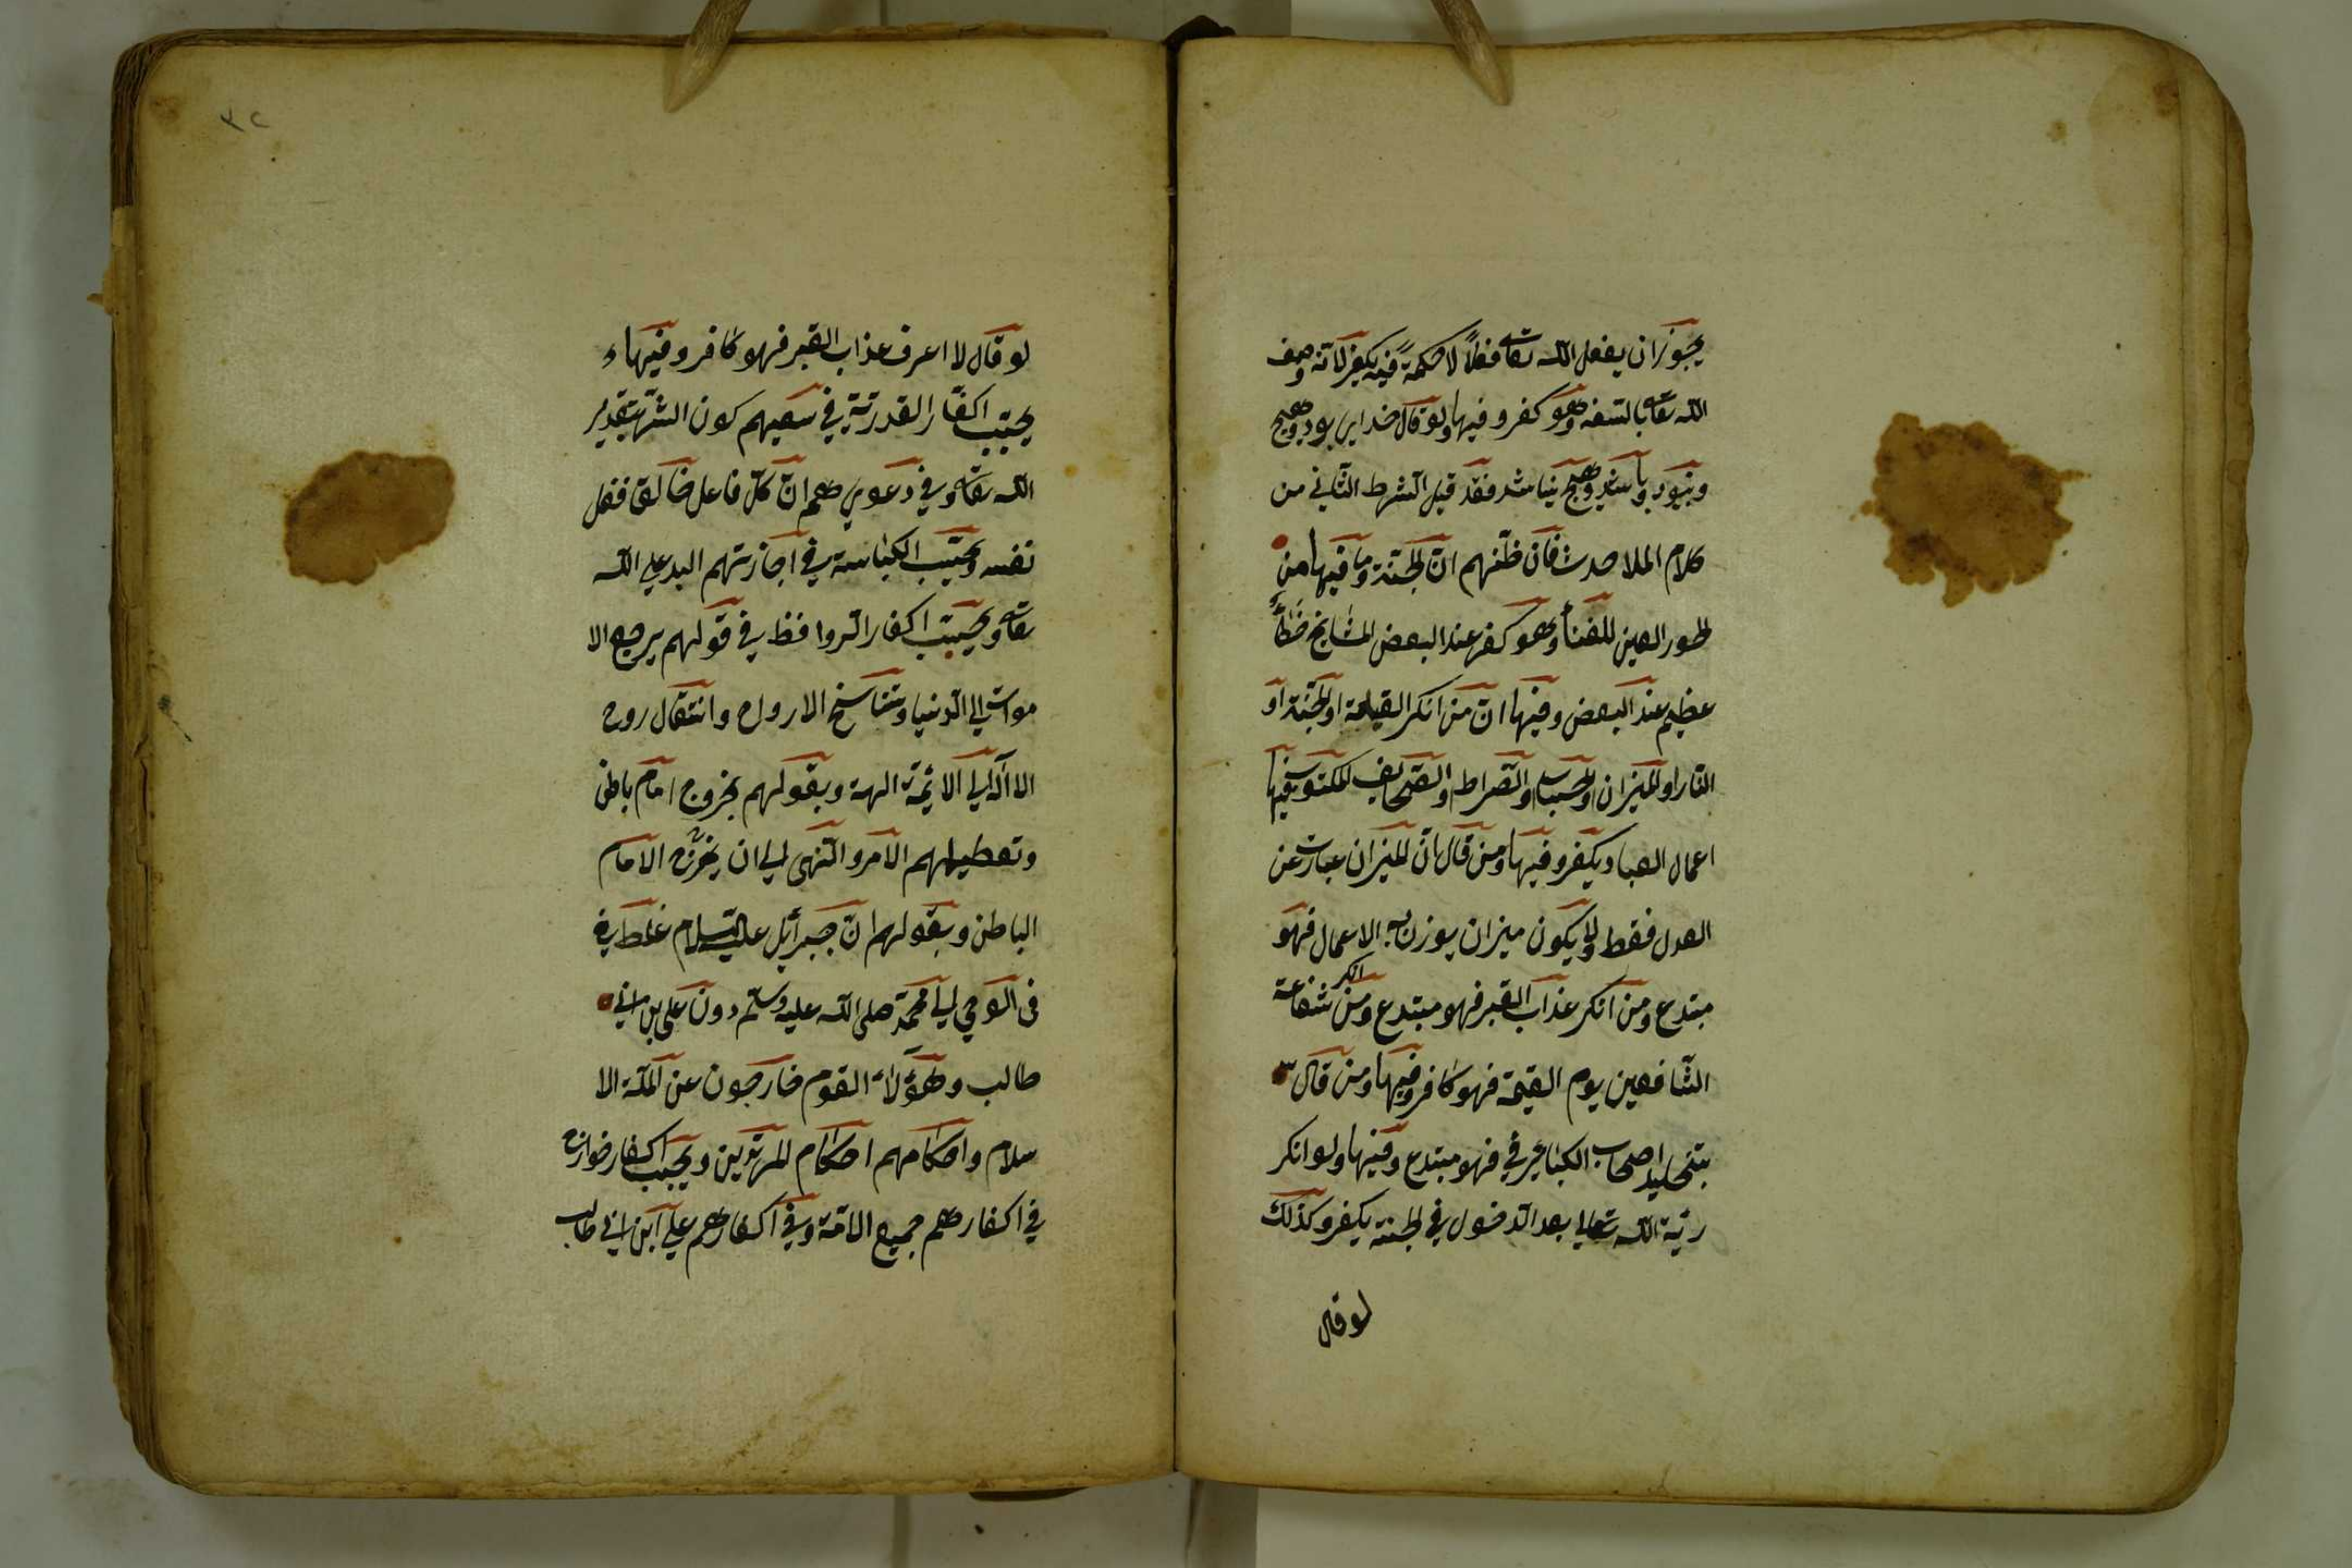 يجوز ان يفعل الله تعا فعلاً لا حكمةً فيه يكفر لانه وصف
الله تعا بالسفه وهو كفر وفيها ولو قال خداي بود وهيچ
ونبود وباشد وهيچ نباشد فقد قيل الشرط الثاني من
كلام الملاحدة فان ظنهم ان الجنة وما فيها من
الحور العين للفنأ وهو كفر عند البعض المشايخ خطأً
عظيم عند البعض وفيها ان من انكر القيامة او الجنة او
النار او الميزان او الحساب او الصراط او الصحايف المكتوب فيها
اعمال العباد يكفر وفيها ومن قال ان الميزان عبارة عن
العدل فقط ولا يكون ميزان يوزن به الاعمال فهو
مبتدع ومن انكر عذاب القبر فهو مبتدع ومن انكر شفاعة
الشافعين يوم القيمة فهو كافر وفيها ومن قال
بتخليد اصحاب الكبائر في فهو مبتدع وفيها ولو انكر
رئية الله تعالي بعد الدخول في الجنة يكفر وكذلك
لو قال
٣٢
لو قال لا اعرف عذاب القبر فهو كافر وفيها
يجب اكفار القدرية في سعيهم كون الشر بتقدير
الله تعا وفي دعويهم ان كل فاعل خالق فعل
نفسه ويجب الكباسة في اجازتهم البد علي الله
تعا ويجب اكفار الروافظ في قولهم يرجع الا
موات الي الدنيا وتناسخ الارواح وانتقال روح
الا اله الي الائمة الهة وبقولهم بخروج امام باطن
وتعطيلهم الامر والنهي الي ان يخرج الامام
الباطن وبقولهم ان جبرأيل عليه السلام غلط في
في الوحي الي محمد صلى الله عليه وسلم دون علي بن ابي
طالب وهؤلاء القوم خارجون عن الملة الا
سلام واحكامهم احكام المرتدين ويجب اكفار خوارج
في اكفارهم جميع الامة وفي اكفارهم علي ابن ابي طالب